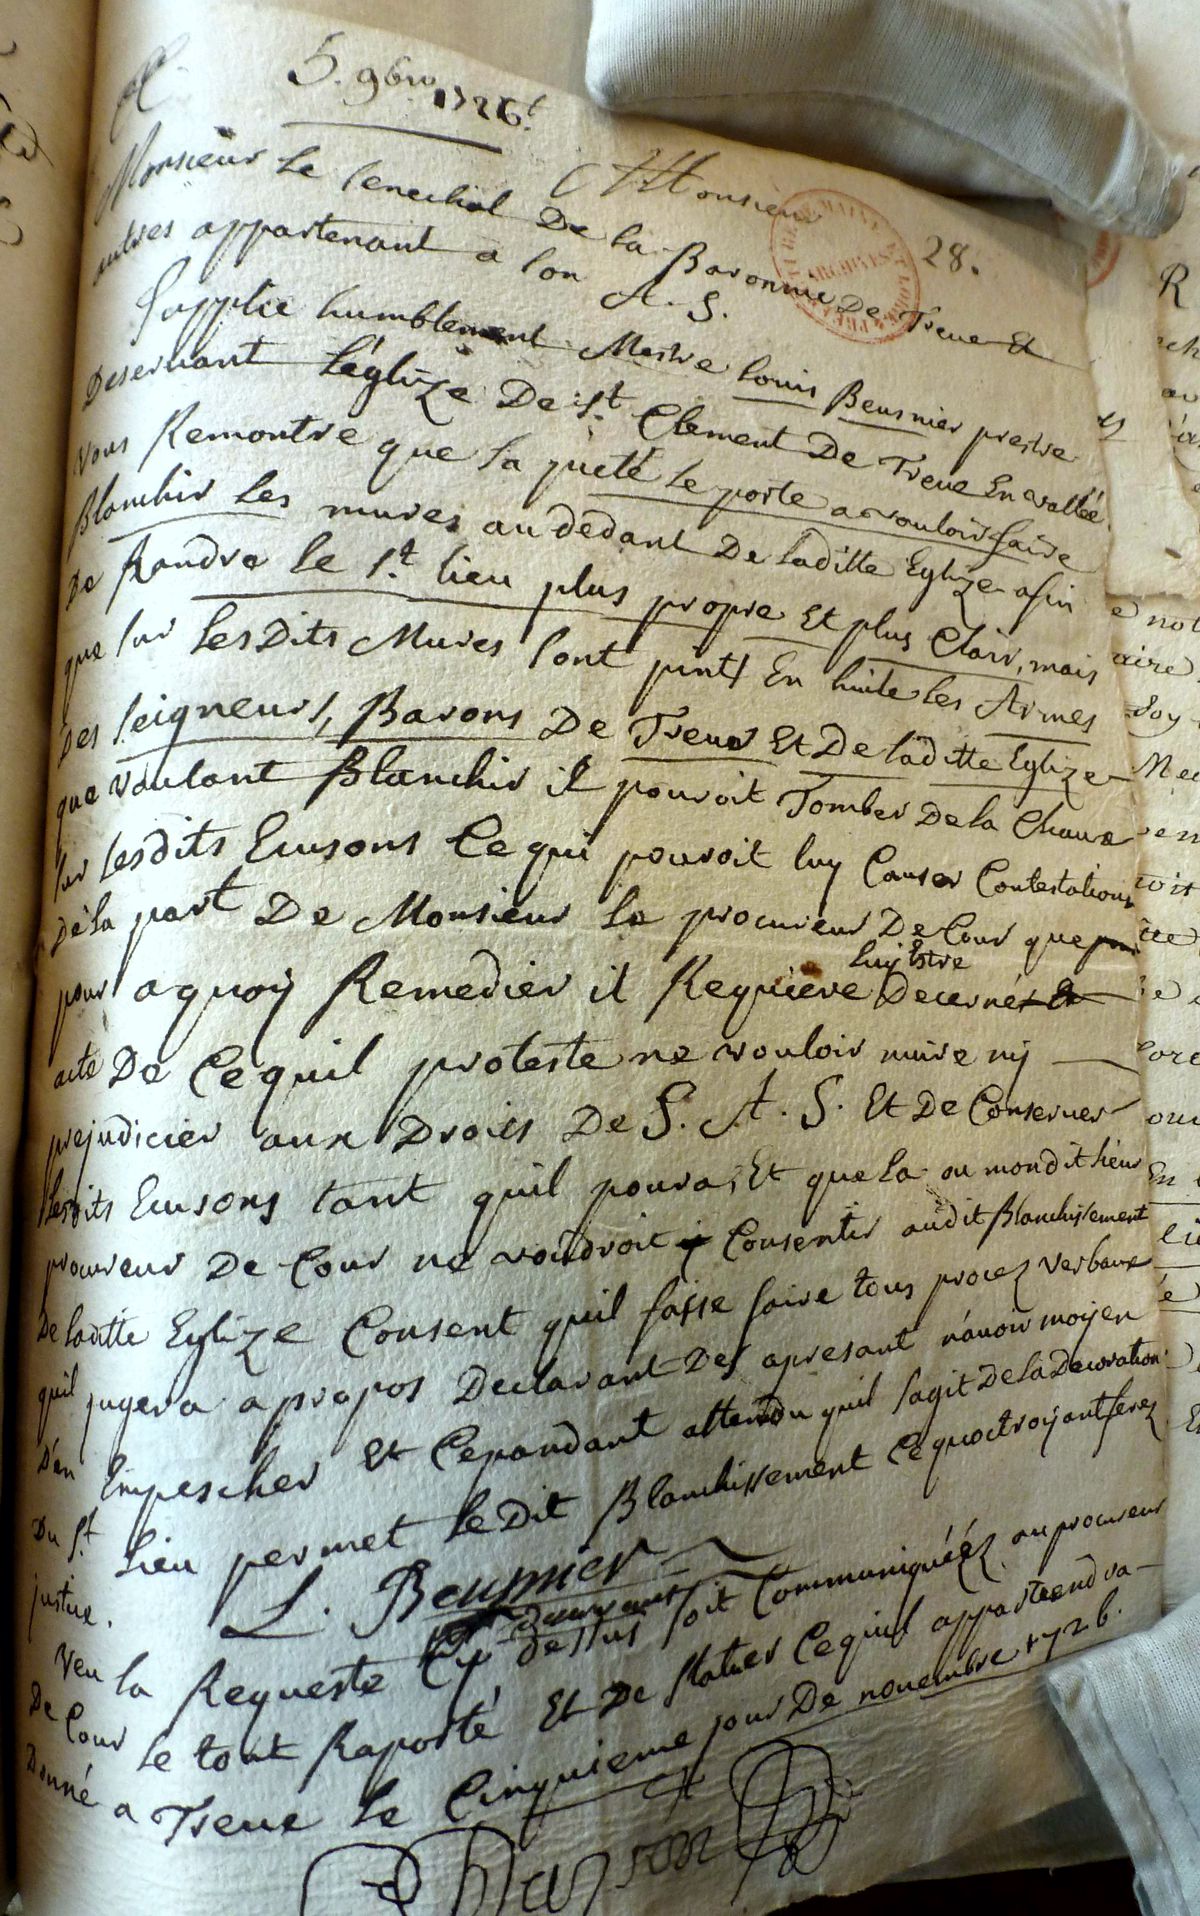 5. 9bre 1726.
A Monsieur
28.
Monsieur Le Senechal De la Baronnie De Treue Et
autres appartenant a Son A. S.
Supplie humblement Mestre Louis Beusnier prestre
Deseruant L'eglize De St. Clement De Treue En vallée
Vous Remontre que sa pieté Le porte a vouloir faire
Blanchir Les mures au dedant De laditte Eglize afin
De Randre le St. lieu plus propre Et plus Clair, mais
que sur Lesdits Mures Sont pints En huile les Armes
Des Seigneurs, Barons De Treues Et De laditte Eglize
que voulant Blanchir il pouroit Tomber De la Chaux
sur Lesdits Ecusons Ce qui pouroit luy Causer Contestations
De la part De Monsieur Le procureur De Cour que
pour a quoy Remedier il Requiere luy Estre Decerné
acte De Ce quil proteste ne vouloir nuire ny
prejudicier aux Droits De S. A. S. Et De Conseruer
Lesdits Ecusons tant quil poura, Et que la ou mondit Sieur
procureur De Cour ne voudroit Consentir audit Blanchissement
De laditte Eglize Consent quil fasse faire tous procez verbaux
quil jugera a propos Declarant Des apresant n'auoir moyen
D'en Empescher Et Cependant attendu quil sagit De la Decoration
Du St. Lieu permet Le Dit Blanchissement Ce quoctroyant ferez
justice.
L. Beusnier
Veu la Requeste Cy dessus soit Communiquéez au procureur
De Cour Le tout Raporté Et De Statuer Ce quil appartiendra
Donné a Treue Le Cinquieme jour De nouembre 1726.